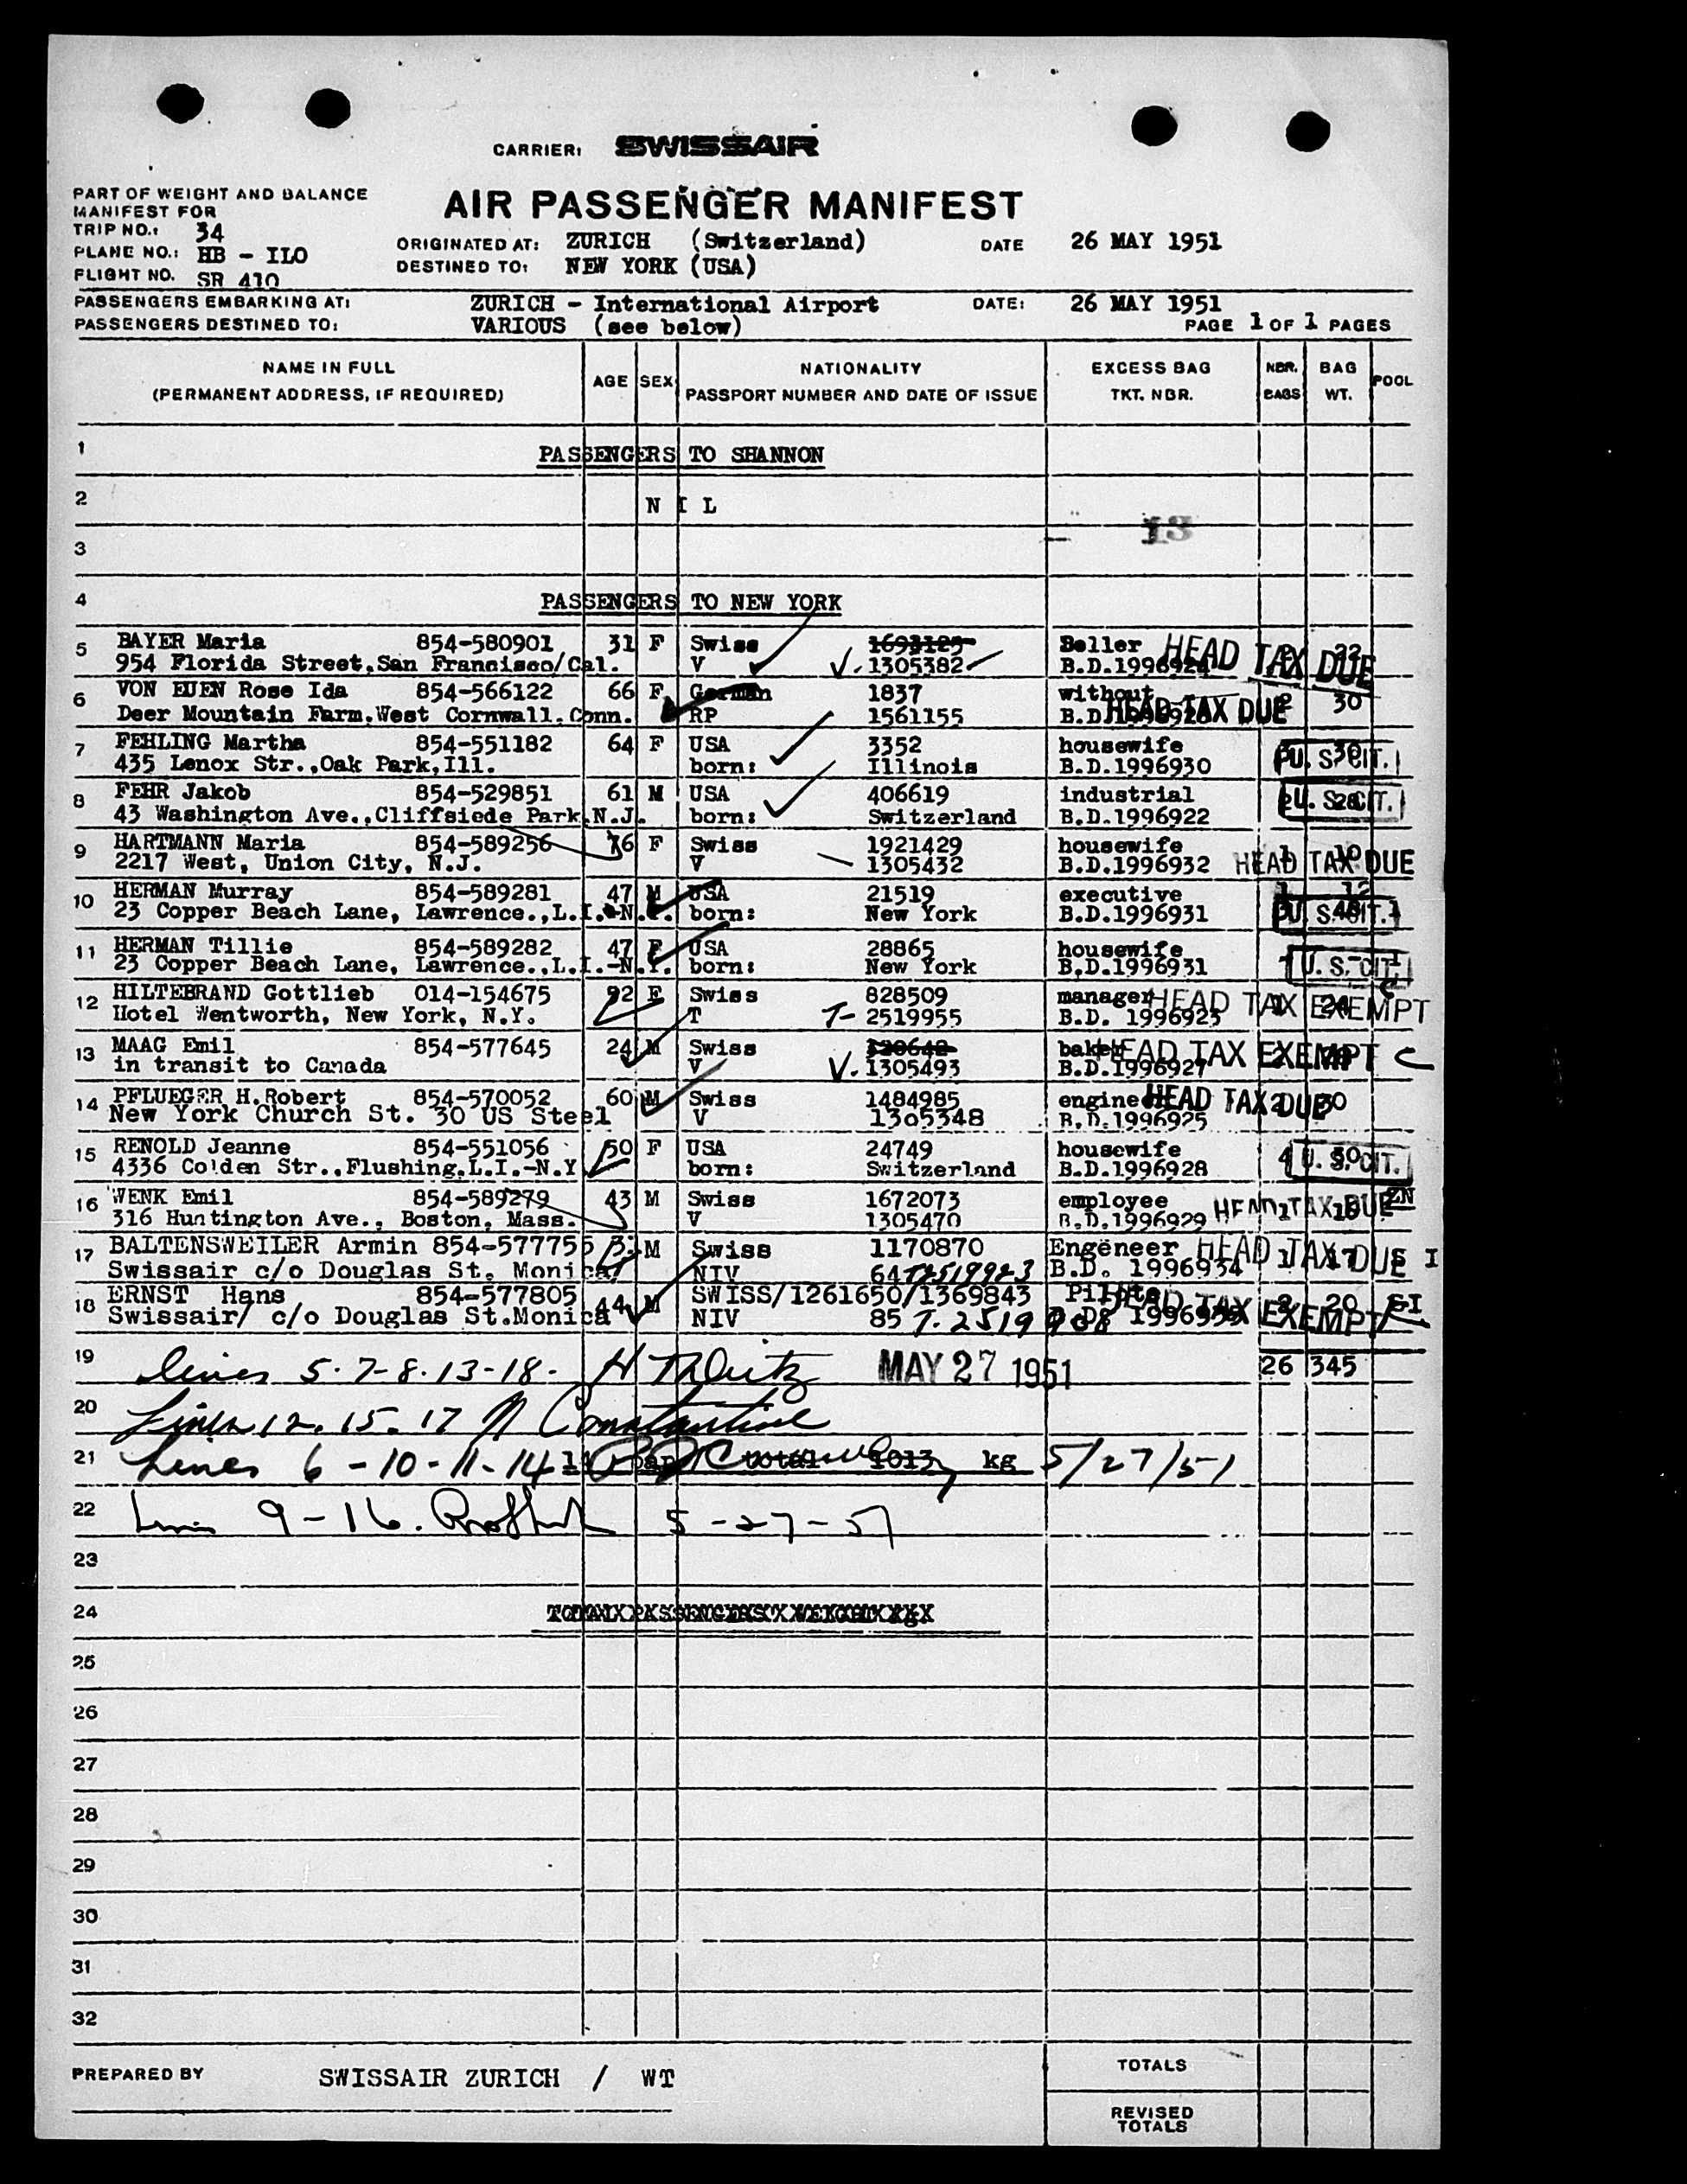 CARRIER: SWISSAIR
PART OF WEIGHT AND BALANCE
MANIFEST FOR
AIR PASSENGER MANIFEST
TRIP NO.: 34
PLANE NO.: HB - ILO
FLIGHT NO. SR 410
ORIGINATED AT: ZURICH (Switzerland) DATE 26 MAY 1951
DESTINED TO: NEW YORK (USA)
PASSENGERS EMBARKING AT: ZURICH - International Airport DATE: 26 MAY 1951
PASSENGERS DESTINED TO: VARIOUS (see below) PAGE 1 OF 1 PAGES
NAME IN FULL AGE SEX NATIONALITY EXCESS BAG NBR. BAG POOL
(PERMANENT ADDRESS, IF REQUIRED) PASSPORT NUMBER AND DATE OF ISSUE TKT. NBR. BAGS WT.
1 PASSENGERS TO SHANNON
2 N I L
13
3
4 PASSENGERS TO NEW YORK
5 BAYER Maria 854-580901 31 F Swiss 1693125 Seller HEAD TAX DUE 22
954 Florida Street,San Francisco/Cal. V V. 1305382 B.D.1996924
6 VON EUEN Rose Ida 854-566122 66 F German 1837 without HEAD TAX DUE 2 30
Deer Mountain Farm.West Cornwall.Conn. RP 1561155 B.D.
7 FEHLING Martha 854-551182 64 F USA 3352 housewife U. S. CIT. 30
435 Lenox Str.,Oak Park,Ill. born: Illinois B.D.1996930
8 FEHR Jakob 854-529851 61 M USA 406619 industrial U. S. CIT.
43 Washington Ave.,Cliffsiede Park,N.J. born: Switzerland B.D.1996922
9 HARTMANN Maria 854-589256 36 F Swiss 1921429 housewife
2217 West, Union City, N.J. V 1305432 B.D.1996932 HEAD TAX DUE
10 HERMAN Murray 854-589281 47 M USA 21519 executive 1 12
23 Copper Beach Lane, Lawrence.,L.I.-N.Y. born: New York B.D.1996931 U. S. CIT.
11 HERMAN Tillie 854-589282 47 F USA 28865 housewife
23 Copper Beach Lane, Lawrence.,L.I.-N.Y. born: New York B.D.1996931 U. S. CIT.
12 HILTEBRAND Gottlieb 014-154675 52 F Swiss 828509 manager HEAD TAX EXEMPT C
Hotel Wentworth, New York, N.Y. T T- 2519955 B.D. 1996923
13 MAAG Emil 854-577645 24 M Swiss 320642 baker HEAD TAX EXEMPT C
in transit to Canada V V. 1305493 B.D.1996927
14 PFLUEGER H.Robert 854-570052 60 M Swiss 1484985 HEAD TAX DUE 2 30
New York Church St. 30 US Steel V 1305348 B.D.1996925
15 RENOLD Jeanne 854-551056 50 F USA 24749 housewife 4 U. S. CIT.
4336 Colden Str.,Flushing.L.I.-N.Y born: Switzerland B.D.1996928
16 WENK Emil 854-589279 43 M Swiss 1672073 employee HEAD TAX DUE ZN
316 Huntington Ave., Boston, Mass. V 1305470 B.D.1996929
17 BALTENSWEILER Armin 854-577755 M Swiss 1170870 Engeneer HEAD TAX DUE 1 17 I
Swissair c/o Douglas St. Monica/ NIV 64 T2519923 B.D. 1996934
18 ERNST Hans 854-577805 44 M SWISS/1261650/1369843 Pilote HEAD TAX EXEMPT 2 20 SI
Swissair/ c/o Douglas St.Monica NIV 85 T. 2519908 B.D. 1996935
19 lines 5-7-8-13-18- MAY 27 1951 26 345
20 Lines 12.15.17 N Constantine
21 Lines 6-10-11-14 total 1013 kg 5/27/51
22 Lines 9-16. 5-27-51
23
24 TOTAL PASSENGERS WEIGHT
25
26
27
28
29
30
31
32
PREPARED BY SWISSAIR ZURICH / WT
TOTALS
REVISED
TOTALS